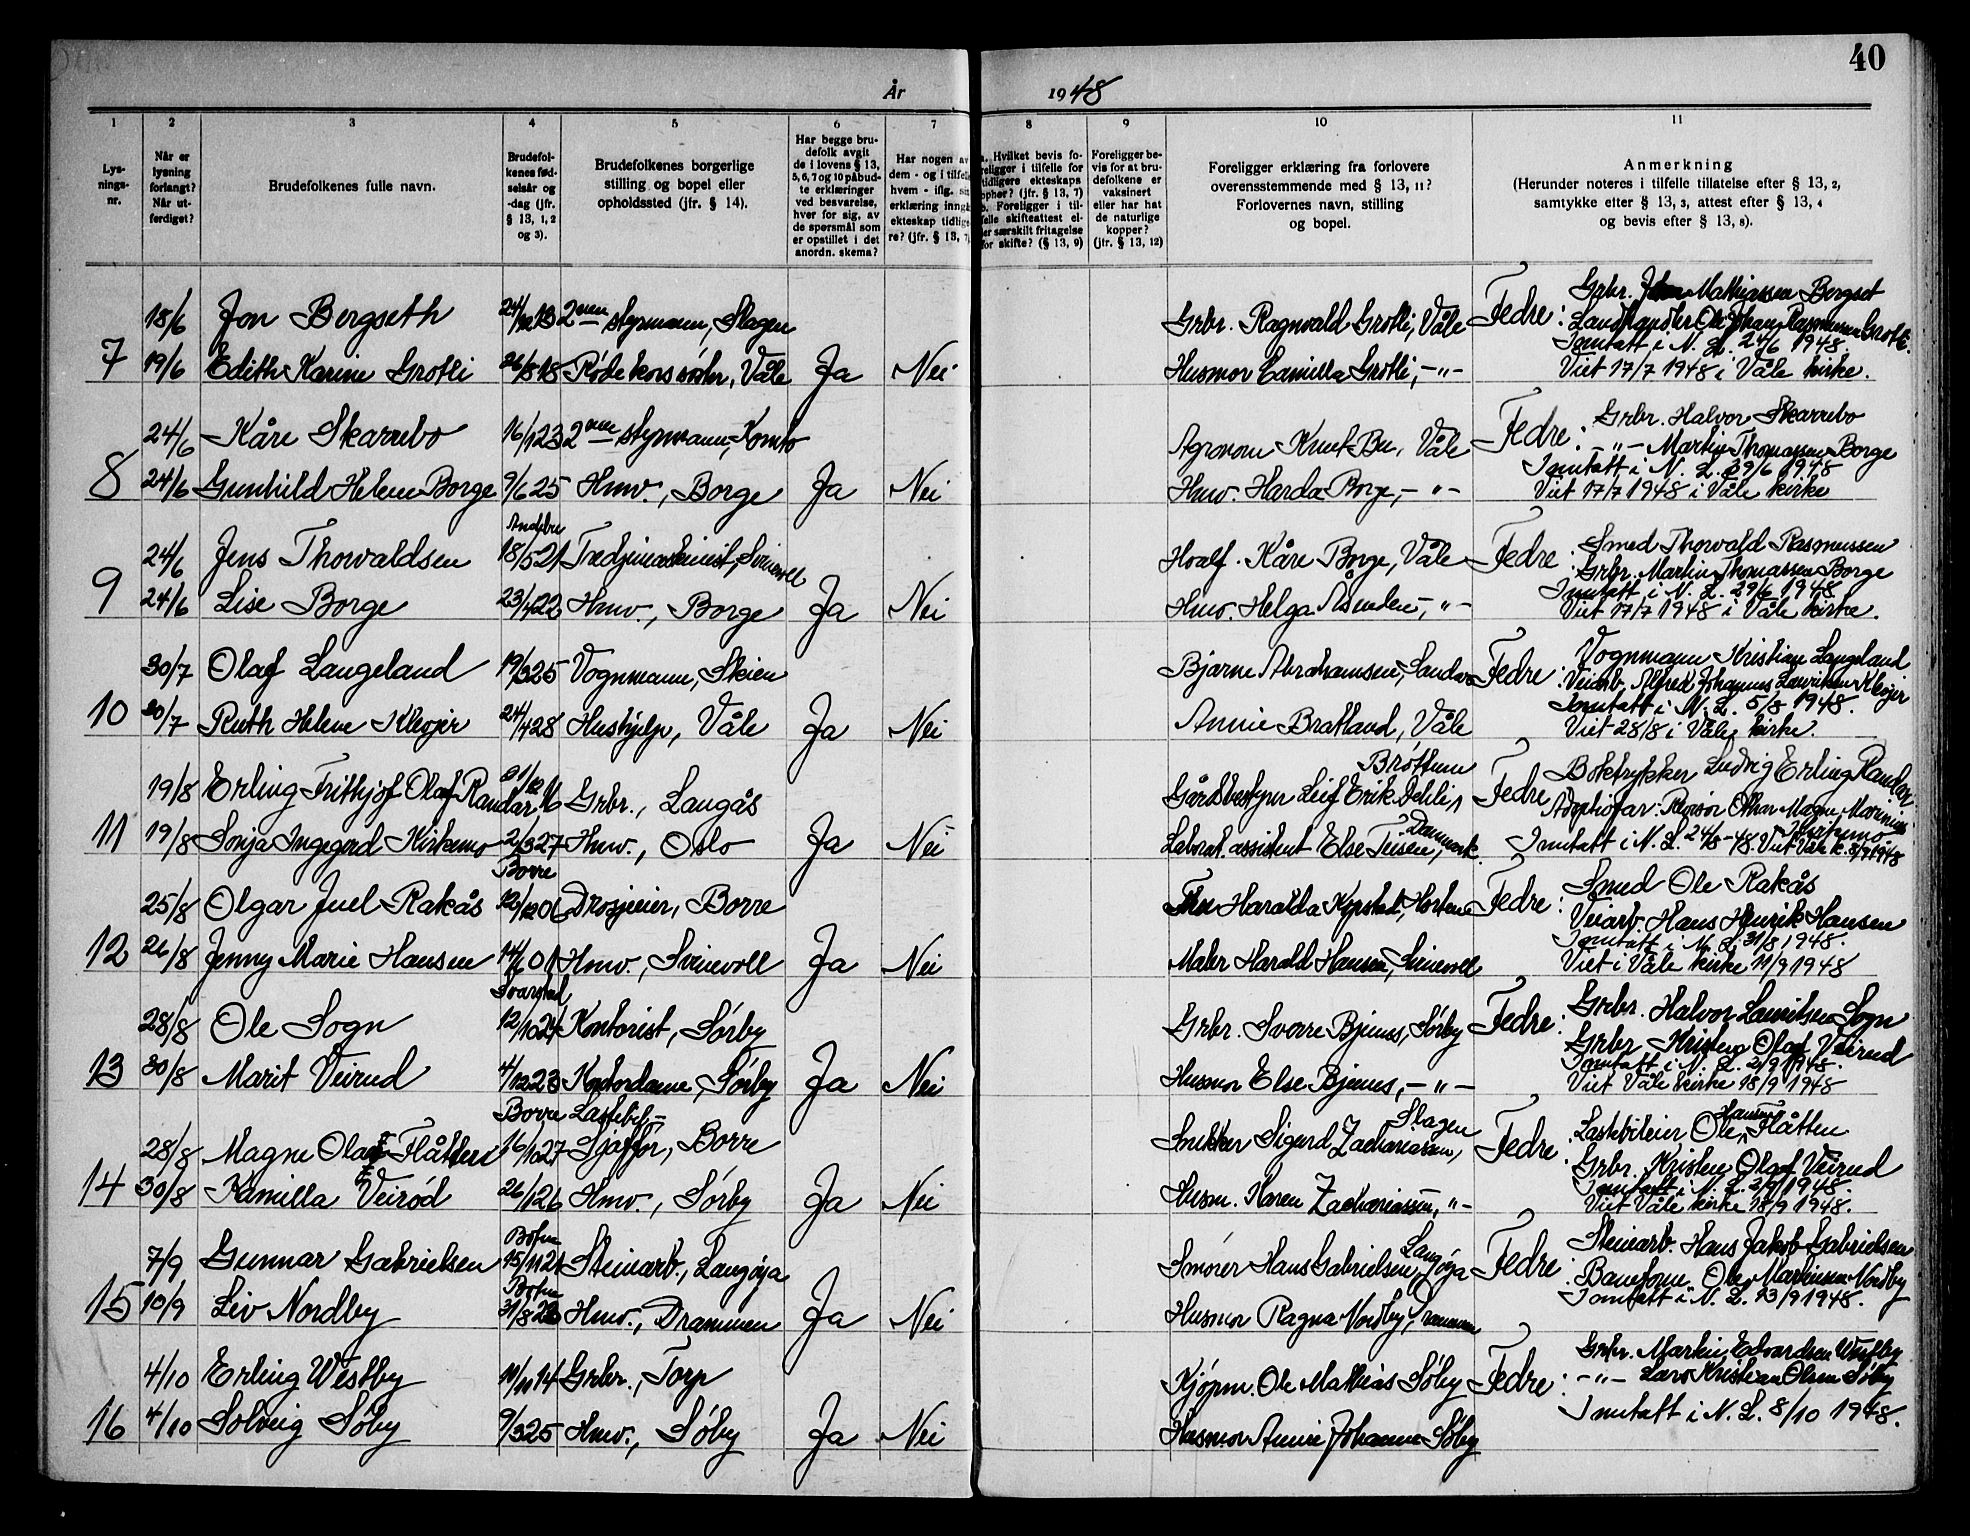 40
År 1948
1 2 3 4 5 6 7 8 9 10 11
Lysningsnr.
Når er lysning forlangt? Når utferdiget?
Brudefolkenes fulle navn.
Brudefolkenes fødselsår og -dag (jfr. § 13, 1, 2 og 3).
Brudefolkenes borgerlige stilling og bopel eller opholdssted (jfr. § 14).
Har begge brudefolk avgit de i lovens § 13, 5, 6, 7 og 10 påbudte erklæringer ved besvarelse, hver for sig, av de spørsmål som er opstillet i det anordn. skema?
Har nogen av dem - og i tilfelle hvem - iflg. sin erklæring inngå ekteskap tidligere? (jfr. § 13, 7)
a. Hvilket bevis foreligger i tilfelle for tidligere ekteskaps opphør? (jfr. § 13, 7) b. Foreligger i tilfelle skifteattest eller særskilt fritagelse for skifte? (§ 13, 9)
Foreligger bevis for at brudefolkene er vaksinert eller har hat de naturlige kopper? (jfr. § 13, 12)
Foreligger erklæring fra forlovere overensstemmende med § 13, 11? Forlovernes navn, stilling og bopel.
Anmerkning (Herunder noteres i tilfelle tillatelse efter § 13, 2, samtykke efter § 13, 3, attest efter § 13, 4 og bevis efter § 13, 8).
18/6 Jon Bergseth 24/12 13 2nen styrmann, Slagen Grbr. Ragnvald Grotli, Våle Fedre: Grbr. Mathiassen Bergset
Landhandler Ole Johan Rasmussen Grotli.
7 19/6 Edith Karine Grotli 26/8 18 Røde kors søster, Våle Ja Nei Husmor Camilla Grotli, -"- Inntatt i N. L. 24/6 1948.
Viet 17/7 1948 i Våle kirke.
24/6 Kåre Skarrebo 16/1 23 2nen styrmann, Agronom Knut Bu, Våle Fedre: Grbr. Halvor Skarrebo
-"- Martin Thomassen Borge
8 24/6 Gunhild Helene Borge 9/6 25 Hmv., Borge Ja Nei Hmv. Harda Borge, -"- Inntatt i N. L. 29/6 1948
Viet 17/7 1948 i Våle kirke
Andebu
24/6 Jens Thorvaldsen 18/5 21 Tredjemaskinist, Svinevoll Hvalf. Kåre Borge, Våle Fedre: Smed Thorvald Rasmussen
Grbr. Martin Thomassen Borge
9 24/6 Lise Borge 23/4 22 Hmv., Borge Ja Nei Hmv. Helga Åsenden, -"- Inntatt i N. L. 29/6 1948
Viet 17/7 1948 i Våle kirke.
30/7 Olaf Langeland 19/3 25 Vognmann, Skien Bjarne Abrahamsen, Sandar Fedre: Vognmann Kristian Langeland
Veiarb. Alfred Johannes Lauritsen Kleøjer
10 30/7 Ruth Helene Kleøjer 24/4 28 Hushjelp, Våle Ja Nei Annie Bratland, Våle Inntatt i N. L. 5/8 1948.
Viet 28/8 i Våle kirke.
Brøttum
19/8 Erling Frithjof Olaf Randar Grbr., Langås Gårdsbestyrer Leif Erik Dehli, Fedre Boktrykker Ludvig Erling Randar
Adoptivfar: Revisor Othar Magne Marinius Kirkemo
11 19/8 Sonja Ingegerd Kirkemo 2/3 27 Hmv., Oslo Ja Nei Laborat. assistent Else Tiesen, Danmark. Inntatt i N. L. 24/8-48. Viet Våle k. 8/9 1948
Borre
25/8 Olgar Juel Rakås 12/12 06 Drosjeeier, Borre Haralda Kopstad, Horten Fedre: Smed Ole Rakås
Veiarb. Hans Henrik Hansen
12 26/8 Jenny Marie Hansen 14/6 01 Hmv., Svinevoll Ja Nei Maler Harald Hansen, Svinevoll Inntatt i N. L. 31/8 1948.
Viet i Våle kirke 11/9 1948
Svarstad
28/8 Ole Sogn 12/10 24 Kontorist, Sørby Grbr. Sverre Bjerues, Sørby Fedre: Grbr. Halvor Lauritsen Sogn
Grbr. Kristen Olaf Veirud
13 30/8 Marit Veirud 4/12 23 Kontordame, Sørby Ja Nei Husmor Else Bjerues, -"- Inntatt i N. L. 2/9 1948.
Viet Våle kirke 18/9 1948
Borre Lastebil-
28/8 Magne Olaf Flåtten 16/10 27 Sjåffør, Borre Snekker Sigurd Zachariassen, Slagen Fedre: Lastebileier Ole Hansen Flåtten
Grbr. Kristen Olaf Veirud
14 30/8 Kamilla Veirød 26/1 26 Hmv., Sørby Ja Nei Husm. Karen Zachariassen, -"- Inntatt i N. L. 2/9 1948.
Viet Våle kirke 18/9 1948.
Botne
7/9 Gunnar Gabrielsen 15/11 21 Steinarb., Langøya Smører Hans Gabrielsen, Langøya Fedre: Steinarb. Hans Jakob Gabrielsen
Botne
Baneform. Ole Martinsen Nordby
15 10/9 Liv Nordby 31/8 26 Hmv., Drammen Ja Nei Husmor Ragna Nordby, Drammen Inntatt i N. L. 13/9 1948.
4/10 Erling Westby 11/11 14 Grbr., Torp Kjøpm. Ole Mathias Søby Fedre: Grbr. Martin Edvardsen Westby
-"- Lars Kristian Olsen Søby
16 4/10 Solveig Søby 9/3 25 Hmv., Søby Ja Nei Husmor Annie Johanne Søby Inntatt i N. L. 8/10 1948.